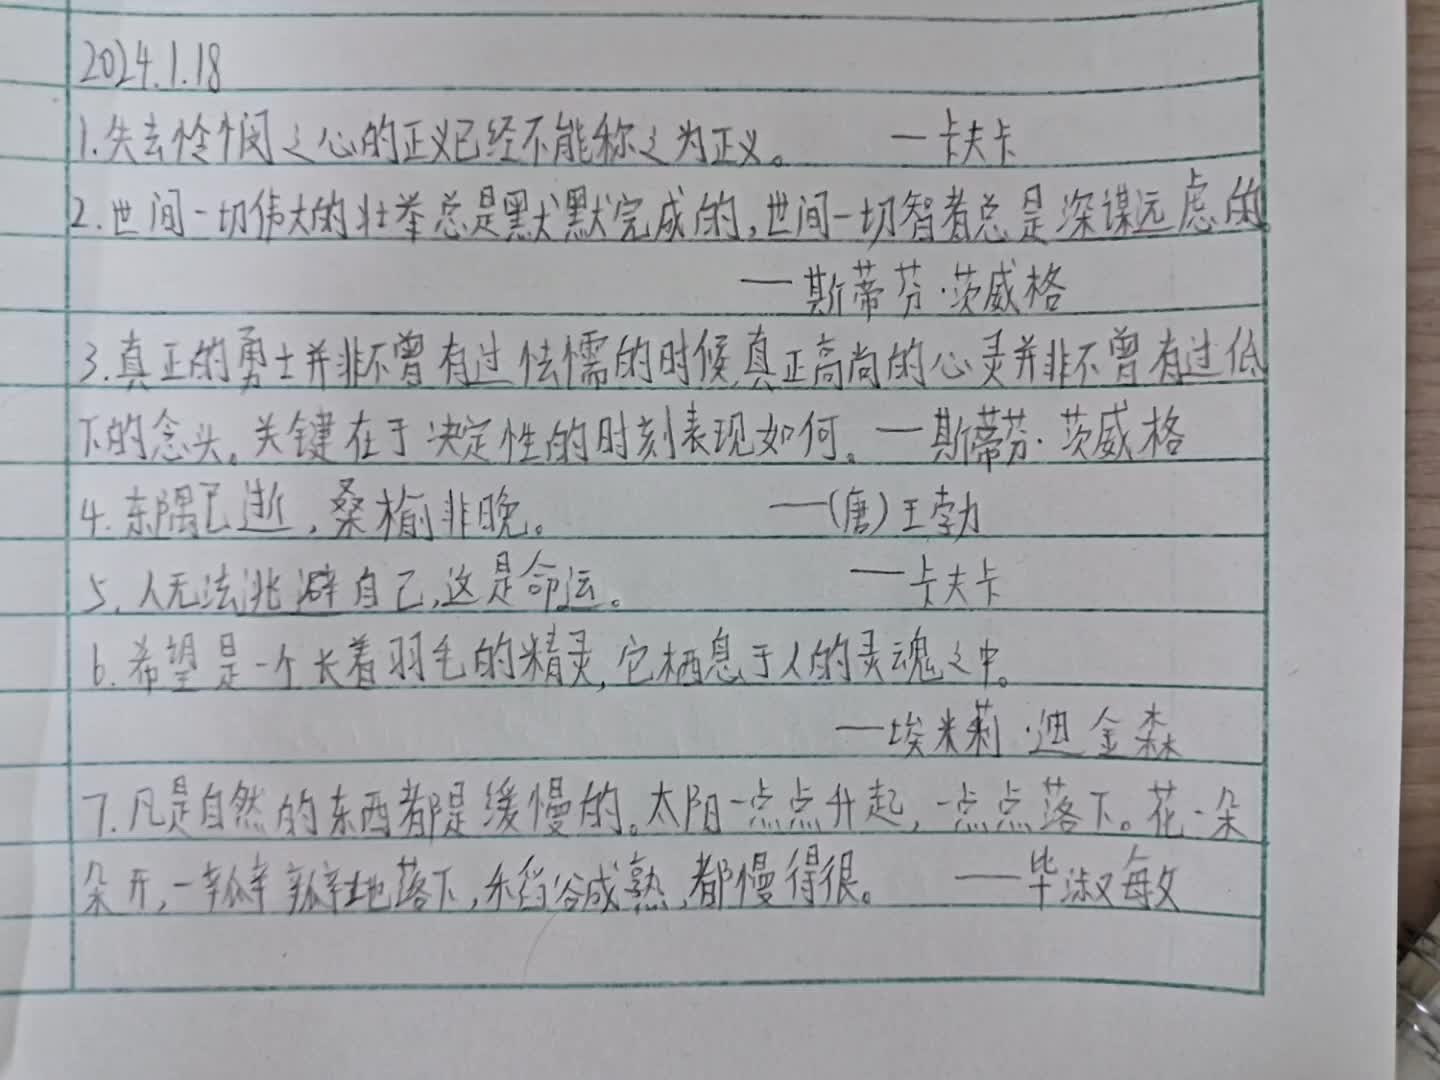 2024.1.18
1.失去怜悯之心的正义已经不能称之为正义。 —卡夫卡
2.世间一切伟大的壮举总是默默完成的,世间一切智者总是深谋远虑的。
—斯蒂芬·茨威格
3.真正的勇士并非不曾有过怯懦的时候,真正高尚的心灵并非不曾有过低
下的念头。关键在于决定性的时刻表现如何。—斯蒂芬·茨威格
4.东隅已逝,桑榆非晚。 —(唐)王勃
5.人无法逃避自己,这是命运。 —卡夫卡
6.希望是一个长着羽毛的精灵,它栖息于人的灵魂之中。
—埃米莉·迪金森
7.凡是自然的东西都是缓慢的。太阳一点点升起,一点点落下。花一朵
朵开,一瓣瓣地落下,稻谷成熟,都慢得很。 —毕淑敏